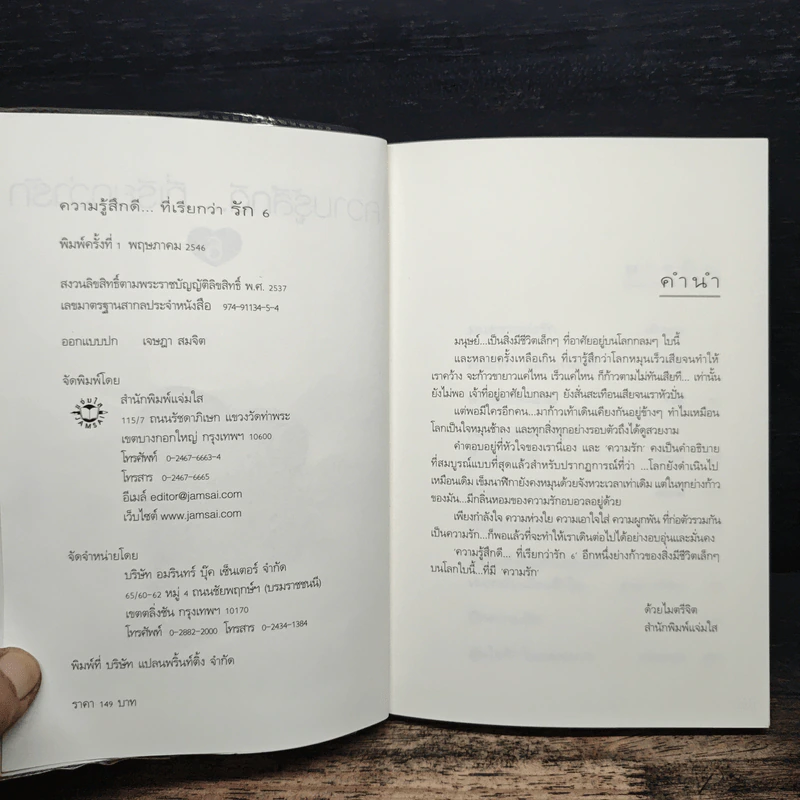 ความรู้สึกดี... ที่เรียกว่า รัก 6
พิมพ์ครั้งที่ 1 พฤษภาคม 2546
สงวนลิขสิทธิ์ตามพระราชบัญญัติลิขสิทธิ์ พ.ศ. 2537
เลขมาตรฐานสากลประจำหนังสือ 974-91134-5-4
ออกแบบปก เจษฎา สมจิต
จัดพิมพ์โดย
สำนักพิมพ์แจ่มใส
115/7 ถนนรัชดาภิเษก แขวงวัดท่าพระ
เขตบางกอกใหญ่ กรุงเทพฯ 10600
โทรศัพท์ 0-2467-6663-4
โทรสาร 0-2467-6665
อีเมล์ editor@jamsai.com
เว็บไซต์ www.jamsai.com
แจ่มใส
JAMSAI
จัดจำหน่ายโดย
บริษัท อมรินทร์ บุ๊ค เซ็นเตอร์ จำกัด
65/60-62 หมู่ 4 ถนนชัยพฤกษ์ฯ (บรมราชชนนี)
เขตตลิ่งชัน กรุงเทพฯ 10170
โทรศัพท์ 0-2882-2000 โทรสาร 0-2434-1384
พิมพ์ที่ บริษัท แปลนพริ้นท์ติ้ง จำกัด
ราคา 149 บาท
คำนำ
มนุษย์...เป็นสิ่งมีชีวิตเล็กๆ ที่อาศัยอยู่บนโลกกลมๆ ใบนี้
และหลายครั้งเหลือเกิน ที่เรารู้สึกว่าโลกหมุนเร็วเสียจนทำให้
เราคว้าง จะก้าวขายาวแค่ไหน เร็วแค่ไหน ก็ก้าวตามไม่ทันเสียที... เท่านั้น
ยังไม่พอ เจ้าที่อยู่อาศัยใบกลมๆ ยังสั่นสะเทือนเสียจนเราหัวปั่น
แต่พอมีใครอีกคน...มาก้าวเท้าเดินเคียงกันอยู่ข้างๆ ทำไมเหมือน
โลกเป็นใจหมุนช้าลง และทุกสิ่งทุกอย่างรอบตัวถึงได้ดูสวยงาม
คำตอบอยู่ที่หัวใจของเรานี่เอง และ 'ความรัก' คงเป็นคำอธิบาย
ที่สมบูรณ์แบบที่สุดแล้วสำหรับปรากฏการณ์ที่ว่า ...โลกยังดำเนินไป
เหมือนเดิม เข็มนาฬิกายังคงหมุนด้วยจังหวะเวลาเท่าเดิม แต่ในทุกย่างก้าว
ของมัน...มีกลิ่นหอมของความรักอบอวลอยู่ด้วย
เพียงกำลังใจ ความห่วงใย ความเอาใจใส่ ความผูกพัน ที่ก่อตัวรวมกัน
เป็นความรัก...ก็พอแล้วที่จะทำให้เราเดินต่อไปได้อย่างอบอุ่นและมั่นคง
'ความรู้สึกดี... ที่เรียกว่ารัก 6' อีกหนึ่งย่างก้าวของสิ่งมีชีวิตเล็กๆ
บนโลกใบนี้...ที่มี 'ความรัก'
ด้วยไมตรีจิต
สำนักพิมพ์แจ่มใส